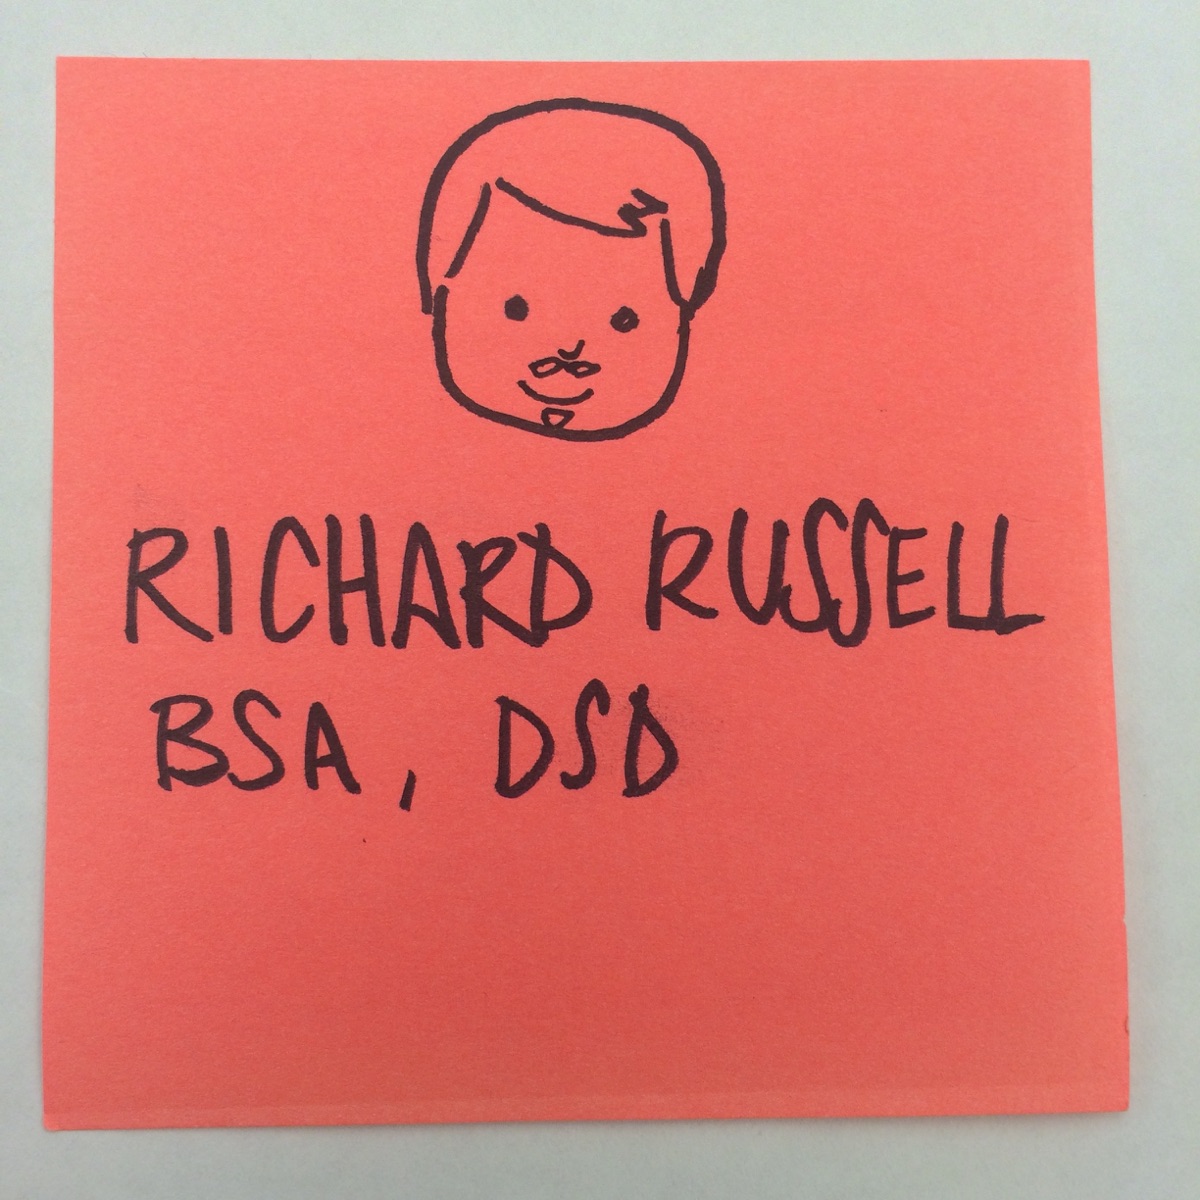 RICHARD RUSSELL
BSA, DSD